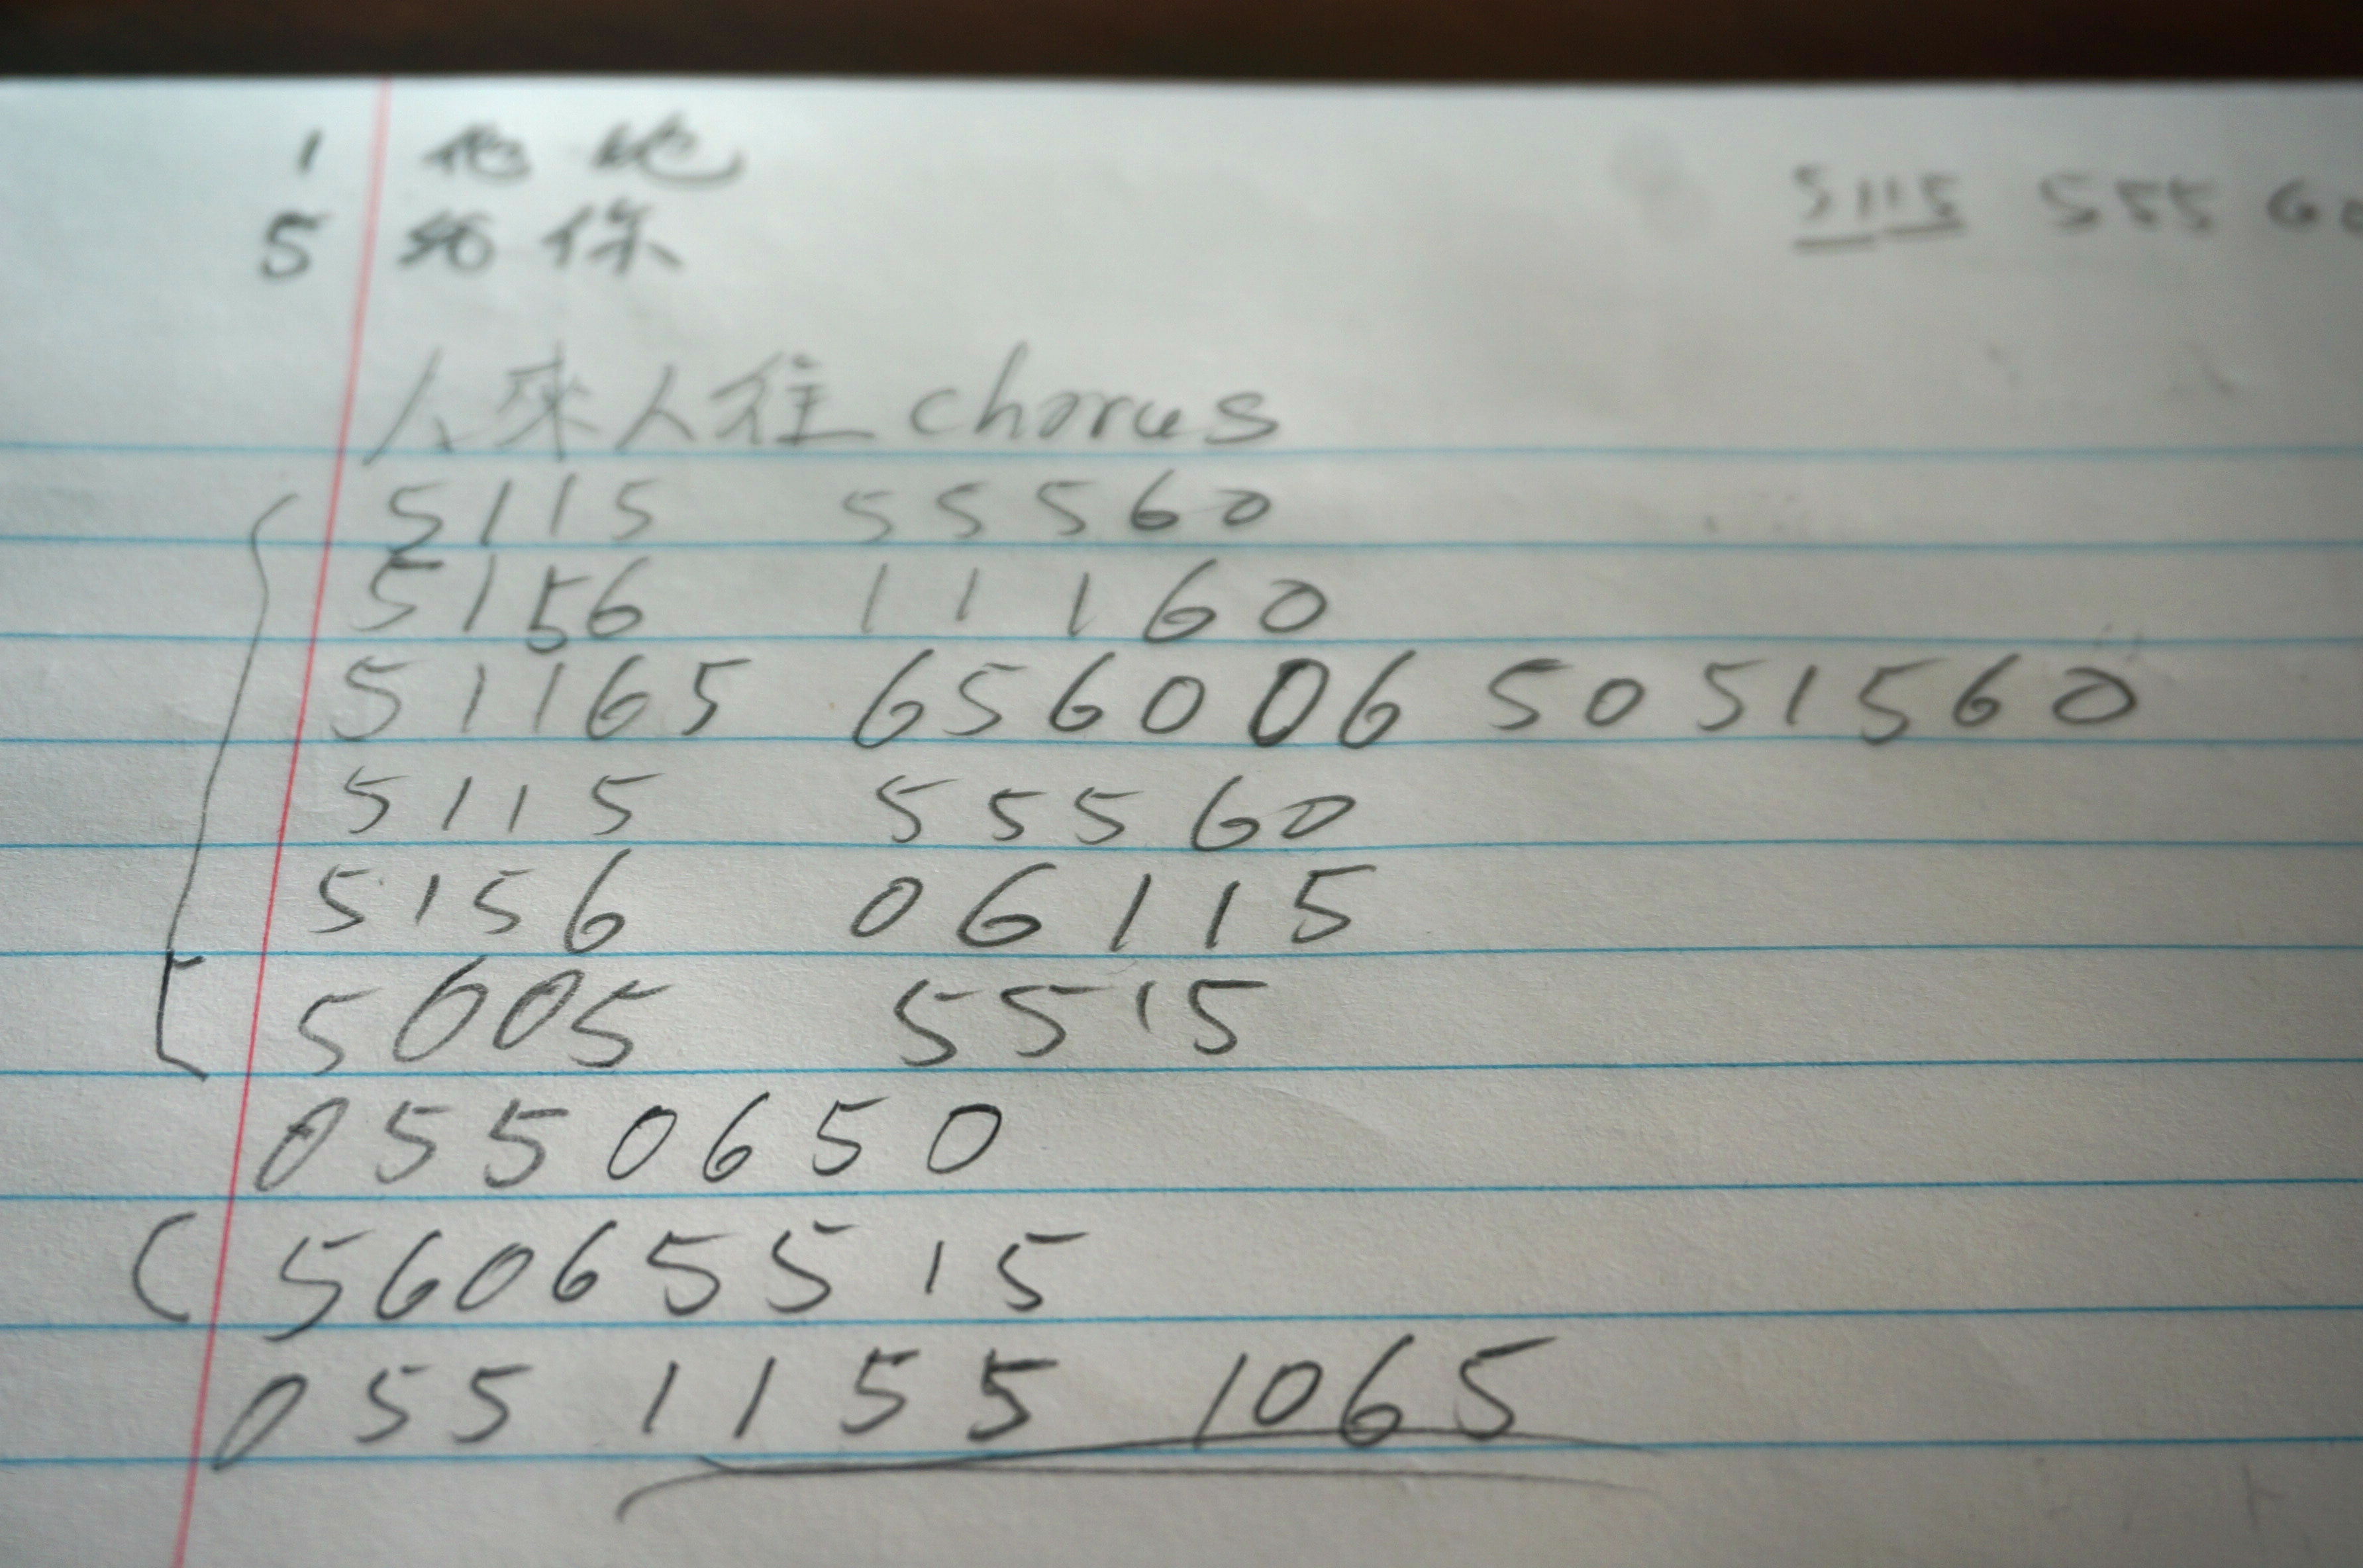 1 他她
5 给你
5115 55560
人來人往 chorus
5115 55560
5156 11160
51165 656006 5051560
5115 55560
5156 06115
5005 5515
0550650
( 56065515
0551155 1065